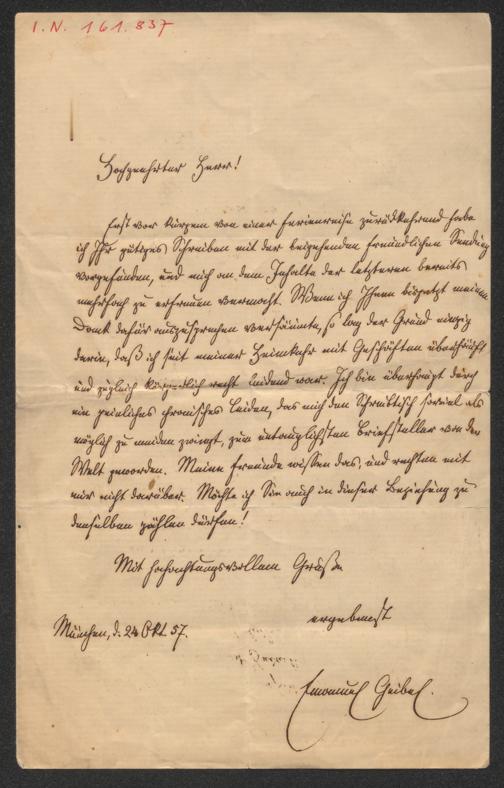 I. N. 161.837
Hochgeehrter Herr!
Erst vor Kurzem von einer Ferienreise zurückkehrend habe
ich Ihr gütiges Schreiben mit der beigehenden freundlichen Sendung
vorgefunden, und mich an dem Inhalte der letzteren bereits
mehrfach zu erfreuen vermocht. Wenn ich Ihnen bisjetzt meinen
Dank dafür auszusprechen versäumte, so lag der Grund einzig
darin, daß ich seit meiner Heimkehr mit Geschäften überhäuft
und zugleich körperlich recht leidend war. Ich bin überhaupt durch
ein peinliches chronisches Leiden, das mich den Schreibtisch soviel als
möglich zu meiden zwingt, zum untauglichsten Briefsteller von der
Welt geworden. Meine Freunde wissen das, und rechten mit
mir nicht darüber. Möchte ich Sie auch in dieser Beziehung zu
denselben zählen dürfen!
Mit hochachtungsvollem Gruße
ergebenst
München, d. 24 Okt 57.
Emanuel Geibel.